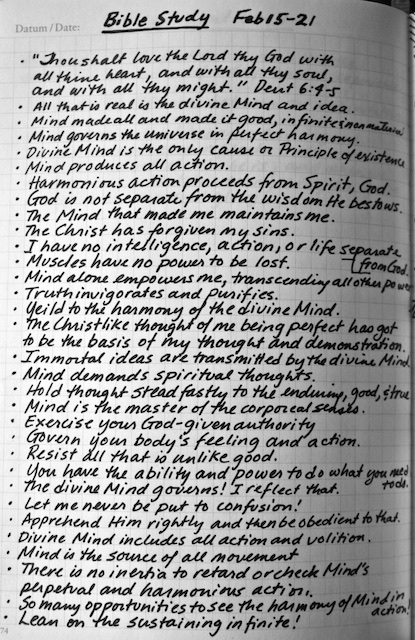 Bible Study Feb 15-21
Datum / Date:
• "Thou shalt love the Lord thy God with
all thine heart, and with all thy soul,
and with all thy might." Deut 6:4-5
• All that is real is the divine Mind and idea.
• Mind made all and made it good, infinite & nonmaterial
• Mind governs the universe in perfect harmony.
• Divine Mind is the only cause or Principle of existence
• Mind produces all action.
• Harmonious action proceeds from Spirit, God.
• God is not separate from the wisdom He bestows.
• The Mind that made me maintains me.
• The Christ has forgiven my sins.
• I have no intelligence, action, or life separate
from God.
• Muscles have no power to be lost.
• Mind alone empowers me, transcending all other power
• Truth invigorates and purifies.
• Yeild to the harmony of the divine Mind.
• The Christlike thought of me being perfect has got
to be the basis of my thought and demonstration.
• Immortal ideas are transmitted by the divine Mind.
• Mind demands spiritual thoughts.
• Hold thought steadfastly to the enduring, good, & true
• Mind is the master of the corporeal senses.
• Exercise your God-given authority
• Govern your body's feeling and action.
• Resist all that is unlike good.
• You have the ability and power to do what you need
to do.
• The divine Mind governs! I reflect that.
• Let me never be put to confusion!
• Apprehend Him rightly and then be obedient to that.
• Divine Mind includes all action and volition.
• Mind is the source of all movement
• There is no inertia to retard or check Mind's
perpetual and harmonious action.
• So many opportunities to see the harmony of Mind in
action!
• Lean on the sustaining infinite!
74